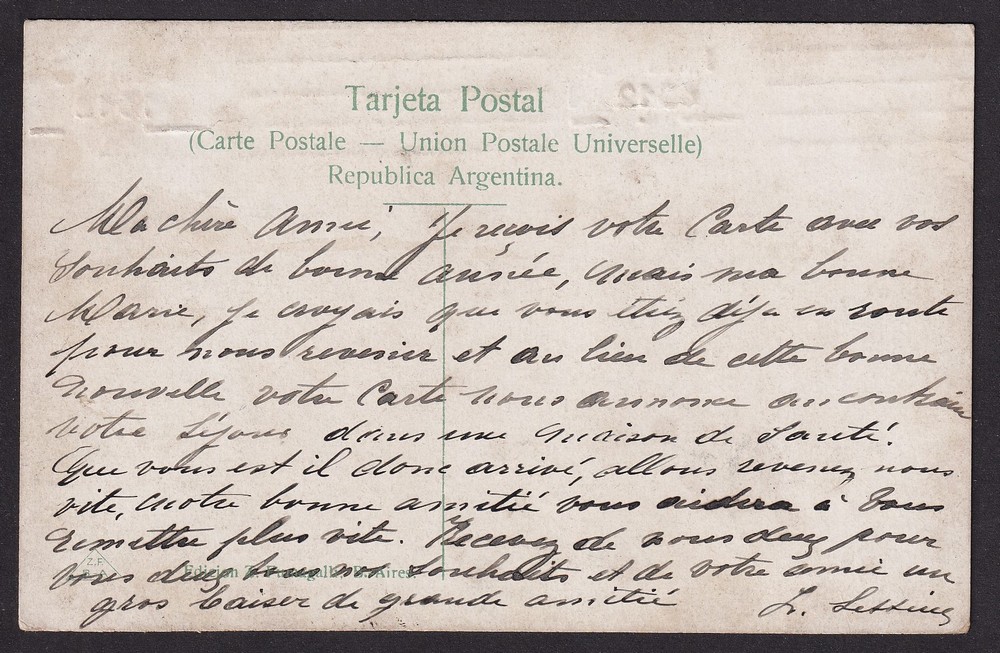 Tarjeta Postal
(Carte Postale — Union Postale Universelle)
Republica Argentina.
Ma chère Amie, Je reçois votre Carte avec vos
souhaits de bonne année, mais ma bonne
Marie, je croyais que vous étiez déja en route
pour nous revenir et au lieu de cette bonne
nouvelle votre Carte nous annonce au contraire
votre séjour dans une maison de santé.
Que vous est il donc arrivé, allons revenez nous
vite, notre bonne amitié vous aidera à vous
remettre plus vite. Recevez de nous deux pour
vous deux tous nos souhaits et de votre amie un
Z.F.
Edicion Z. Fumagalli, B. Aires
gros baiser de grande amitié